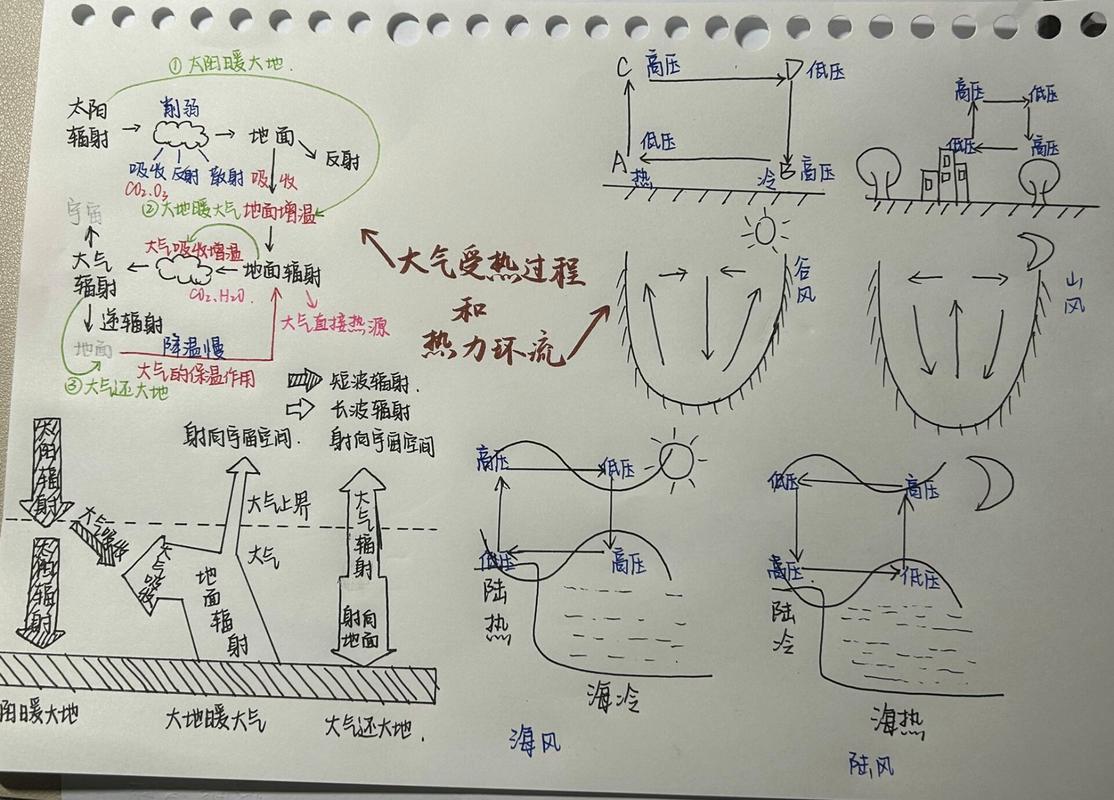 ①太阳暖大地.
太阳
辐射
削弱
地面
反射
吸收 反射 散射
吸收
CO₂.O₃
宇宙
②大地暖大气
地面增温
大气吸收增温
大气
辐射
地面辐射
CO₂.H₂O.
逆辐射
大气直接热源
地面
降温慢
大气的保温作用
③大气还大地
大气受热过程
和
热力环流
C 高压 D 低压
低压
A B 高压
热 冷
高压 低压
低压 高压
谷风
山风
短波辐射.
长波辐射
射向宇宙空间.
射向宇宙空间
太阳辐射
大气上界
大气
太阳辐射
大气吸收
地面辐射
大气辐射
射向
地面
阳暖大地
大地暖大气
大气还大地.
高压 低压
低压 高压
陆热
海冷
海风
低压 高压
高压 低压
陆冷
海热
陆风